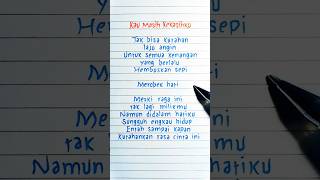 Kau Masih Kekasihku
Tak bisa kutahan
laju angin
Untuk semua kenangan
yang berlalu
Hembuskan sepi
Merobek hati
Meski raga ini
tak lagi milikmu
Namun didalam hatiku
Sungguh engkau hidup
Entah sampai kapan
Kutahankan rasa cinta ini